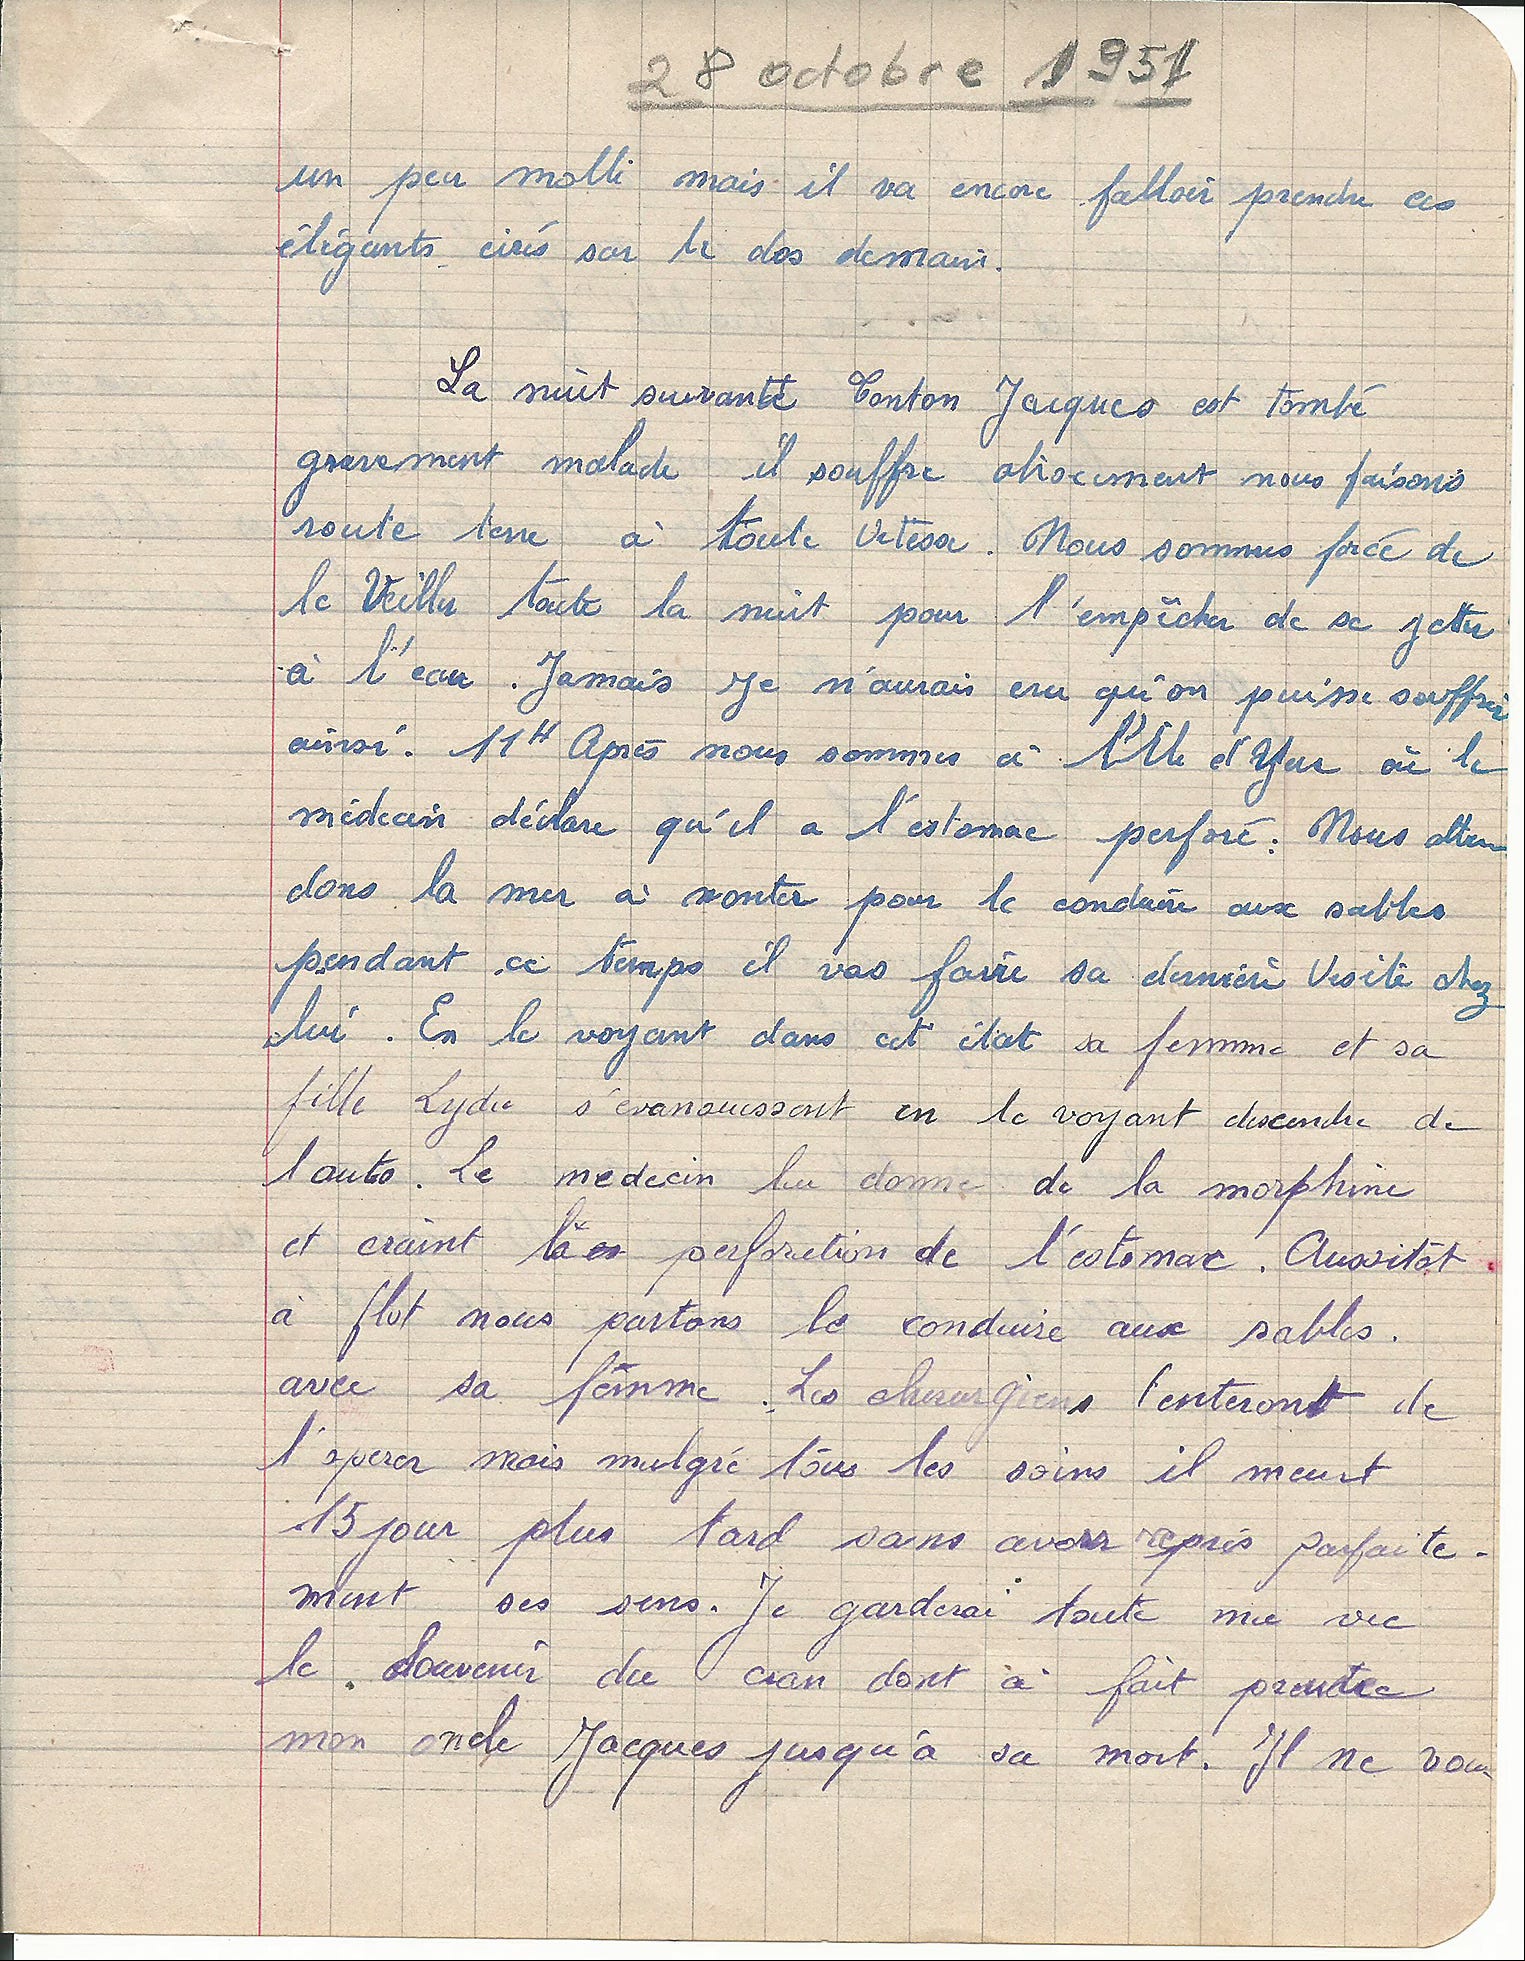 28 octobre 1951
un peu molli mais il va encore falloir prendre ces
élégants cirés sur le dos demain.
La nuit suivante Tonton Jacques est tombé
gravement malade il souffre atrocement nous faisons
route terre à toute vitesse. Nous sommes forcé de
le veiller toute la nuit pour l'empêcher de se jetter
à l'eau. Jamais je n'aurais cru qu'on puisse souffrir
ainsi. 11H Après nous sommes à l'Ile d'Yeu où le
médecin déclare qu'il a l'estomac perforé. Nous atten
dons la mer à monter pour le conduire aux sables
pendant ce temps il vas faire sa dernière visite chez
lui. En le voyant dans cet état sa femme et sa
fille Lydie s'évanouissent en le voyant descendre de
l'auto. Le medecin lui donne de la morphine
et craint la perforation de l'estomac. Aussitôt
à flot nous partons le conduire aux sables.
avec sa femme. Les chirurgiens tenteront de
l'opérer mais malgré tous les soins il meurt
15 jour plus tard sans avoir repris parfaite-
ment ses sens. Je garderai toute ma vie
le souvenir du cran dont à fait preuve
mon oncle Jacques jusqu'à sa mort. Il ne vou